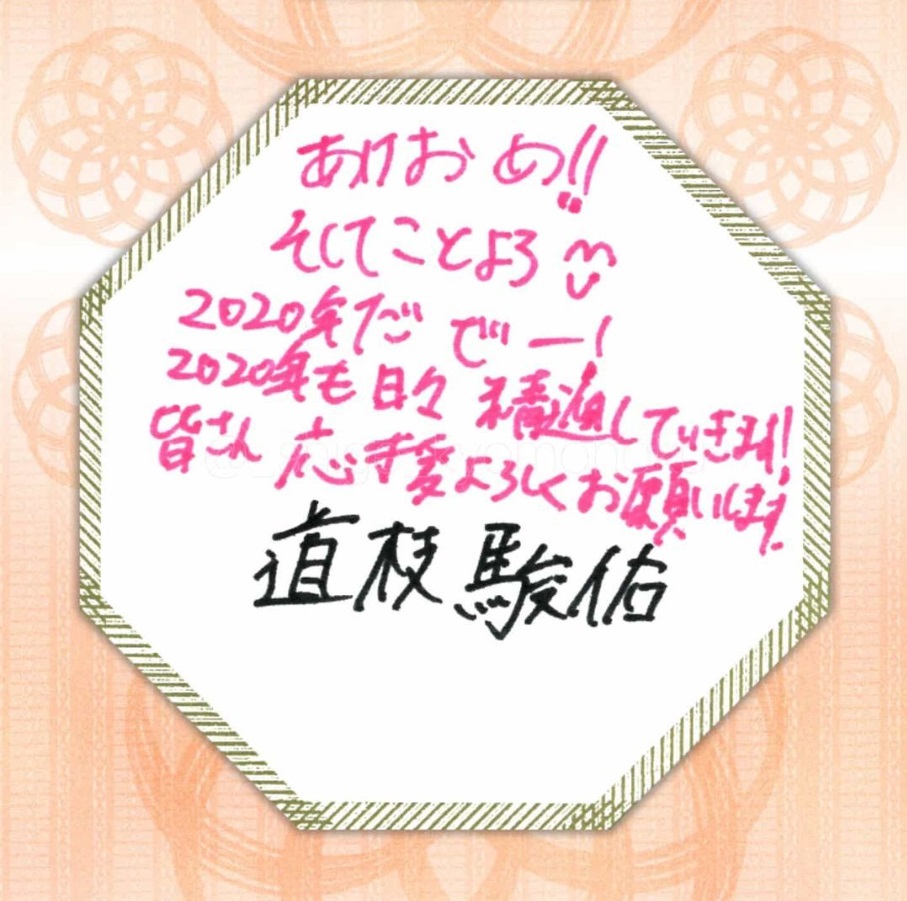 あけおめ!!
そしてことよろ
2020年だでー!
2020年も日々精進していきます!!
皆さん応援よろしくお願いします。
道枝駿佑